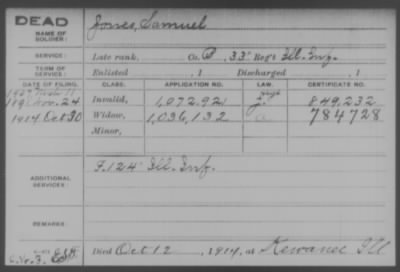 DEAD
NAME OF SOLDIER: Jones, Samuel
SERVICE: Late rank, Co. B, 33" Reg't Ill. Inf.
TERM OF SERVICE: Enlisted , 1 Discharged , 1
DATE OF FILING. CLASS. APPLICATION NO. LAW. CERTIFICATE NO.
1891 Nov. 24 Invalid, 1,072,921 849,232
1914 Oct 30 Widow, 1,036,132 784728
Minor,
ADDITIONAL SERVICES: F. 124" Ill. Inf.
REMARKS:
Died Oct 12, 1914, at Kewanee Ill